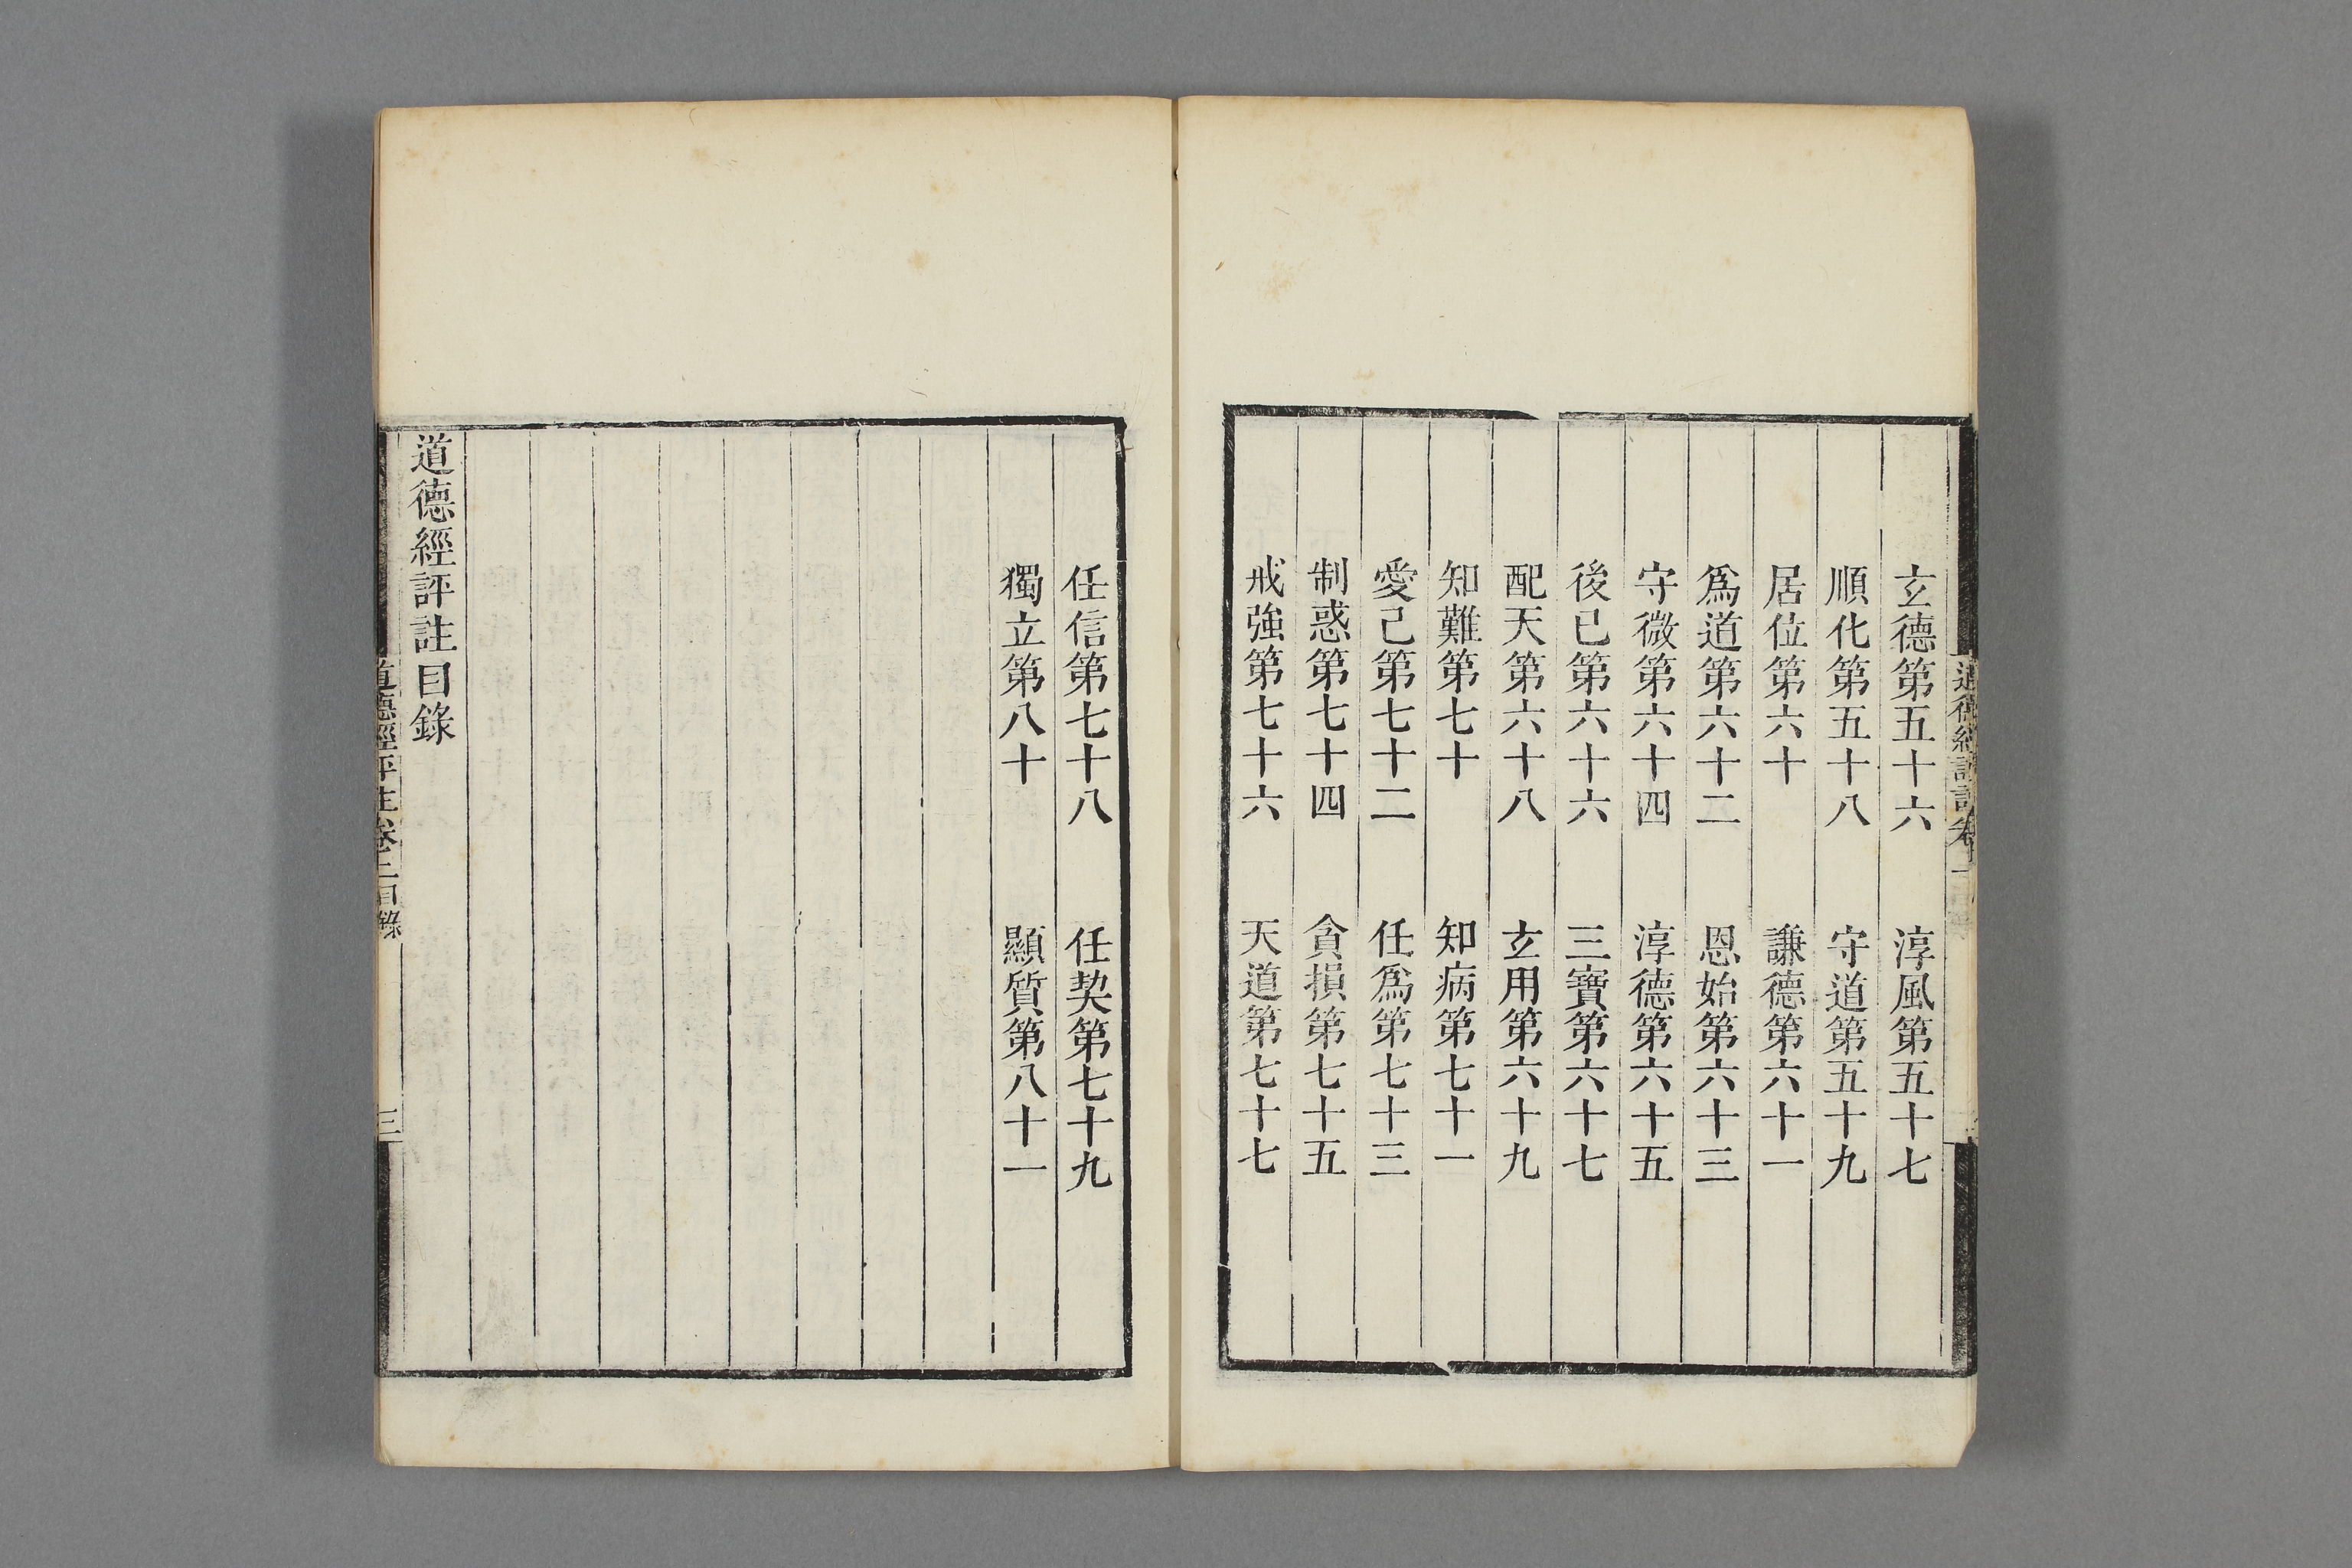 玄德第五十六　淳風第五十七
順化第五十八　守道第五十九
居位第六十　謙德第六十一
爲道第六十二　恩始第六十三
守微第六十四　淳德第六十五
後已第六十六　三寶第六十七
配天第六十八　玄用第六十九
知難第七十　知病第七十一
愛己第七十二　任爲第七十三
制惑第七十四　貪損第七十五
戒強第七十六　天道第七十七
任信第七十八　任契第七十九
獨立第八十　顯質第八十一
道德經評註目錄
道德經評註卷上目錄　三